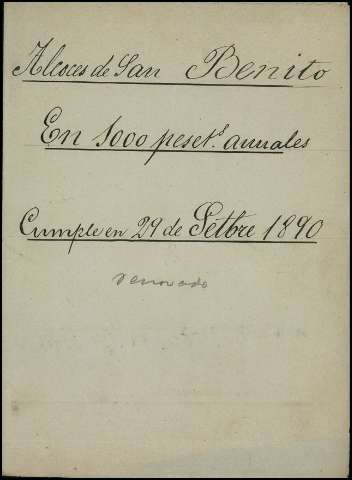 Alcores de San Benito
En 1000 peset.s anuales
Cumple en 29 de Setbre 1890
renovado